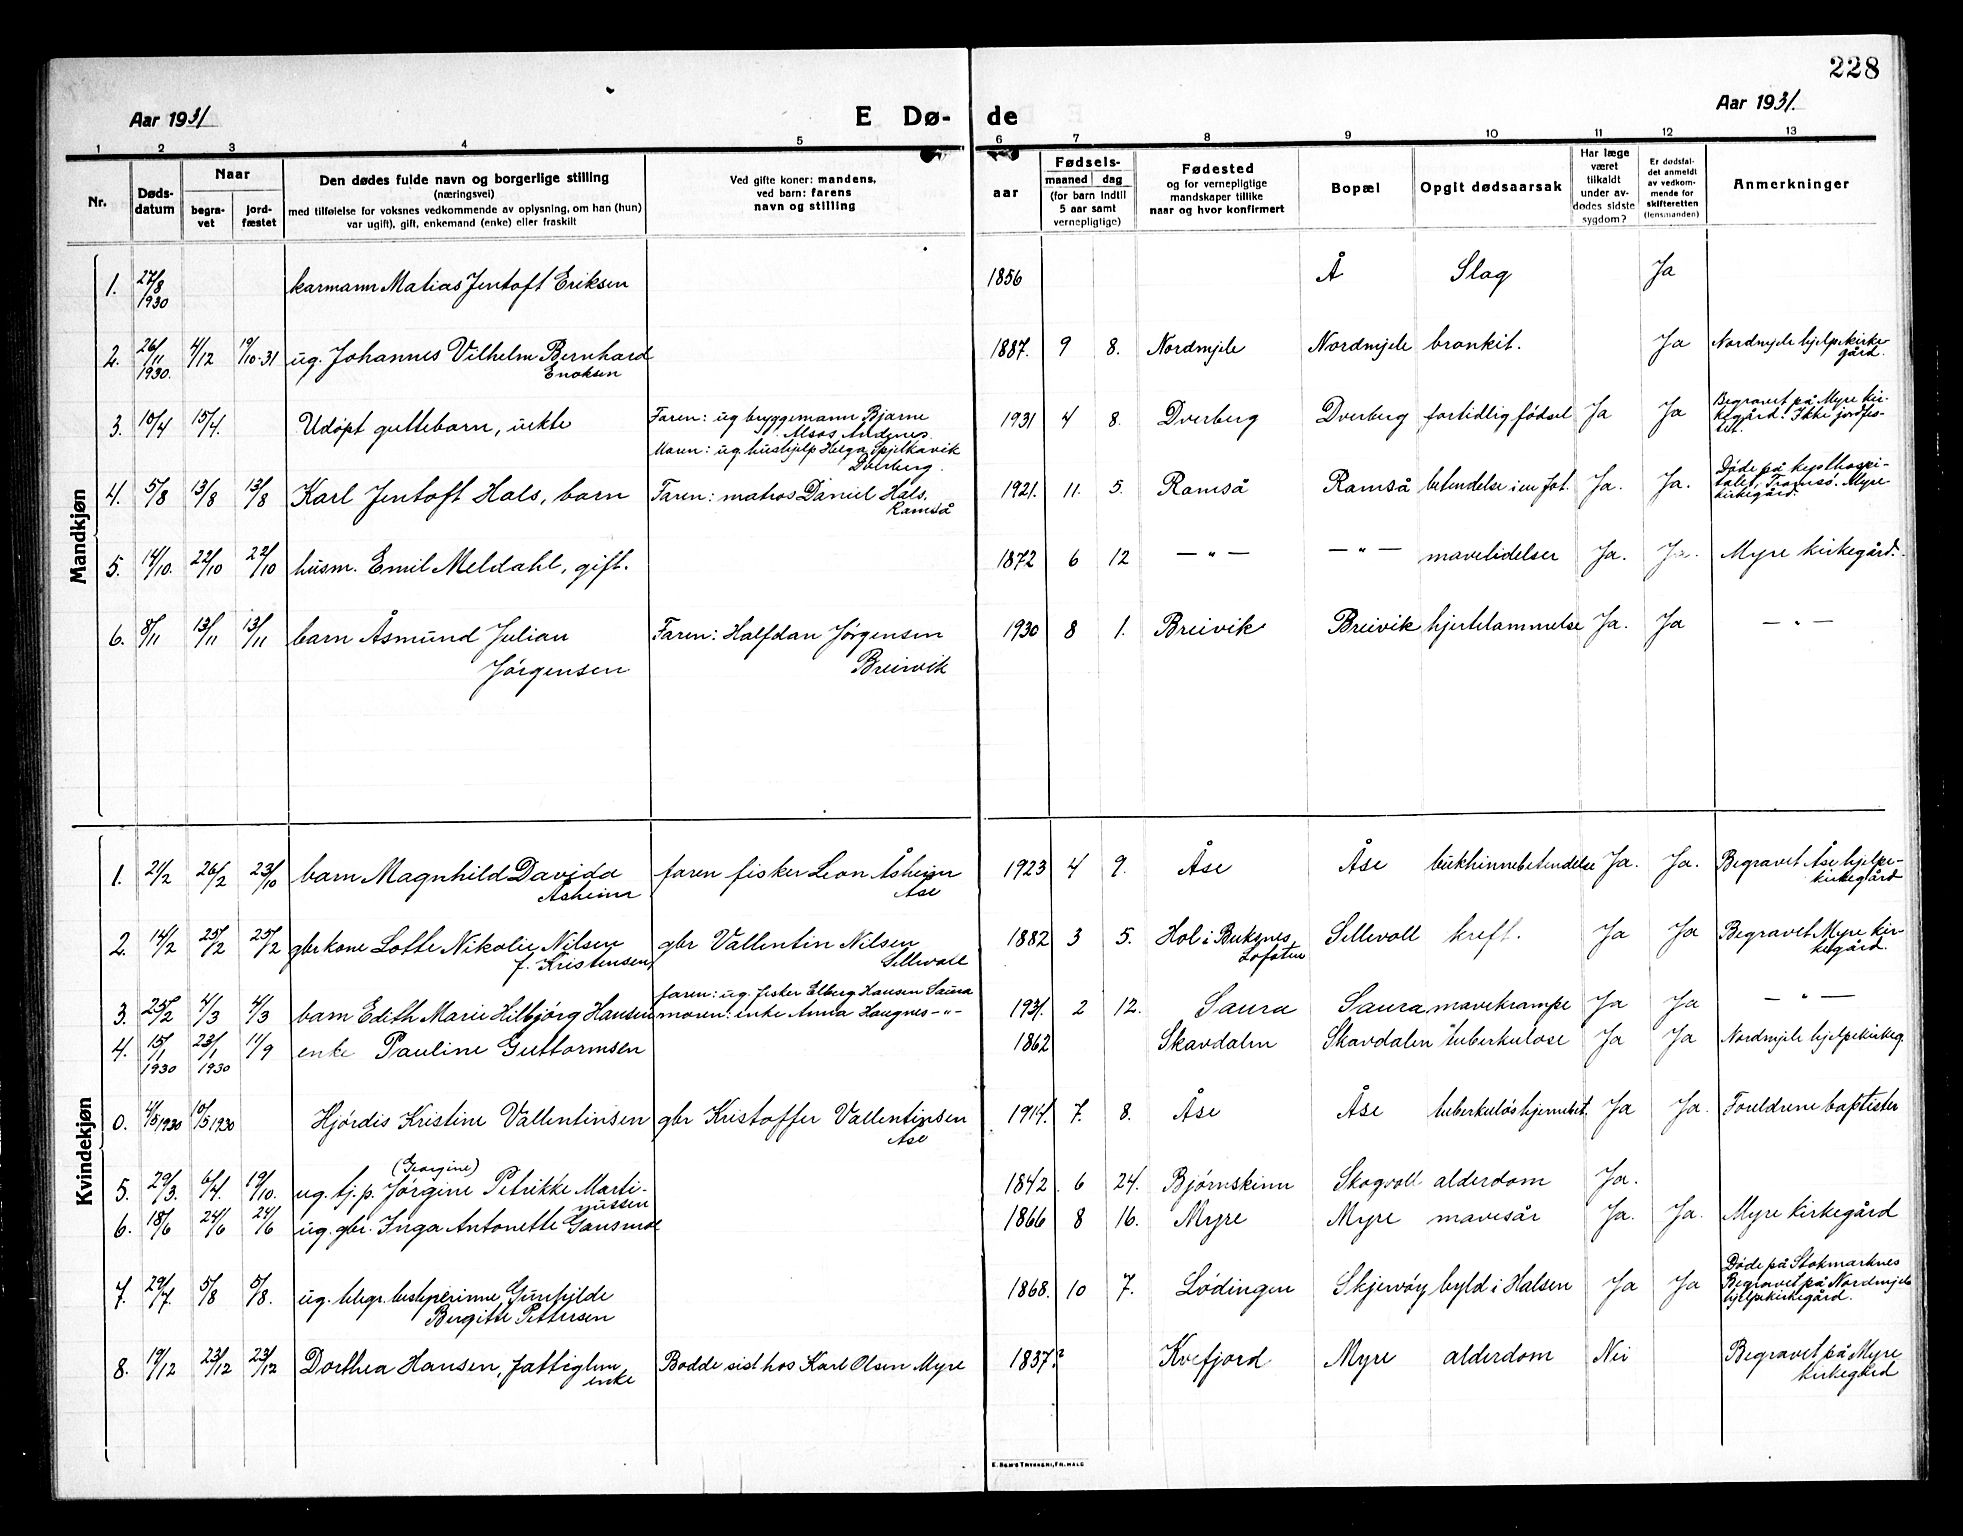 228
Aar 1931
E Dø-
de
Aar 1931.
1 2 3 4 5 6 7 8 9 10 11 12 13
Nr.
Døds-
datum
Naar
begra-
vet
jord-
fæstet
Den dødes fulde navn og borgerlige stilling
(næringsvei)
med tilføielse for voksnes vedkommende av oplysning, om han (hun)
var ugift), gift, enkemand (enke) eller fraskilt
Ved gifte koner: mandens,
ved barn: farens
navn og stilling
aar
Fødsels-
maaned dag
(for barn indtil
5 aar samt
vernepligtige)
Fødested
og for vernepligtige
mandskaper tillike
naar og hvor konfirmert
Bopæl
Opgit dødsaarsak
Har læge
været
tilkaldt
under av-
dødes sidste
sygdom?
Er dødsfal-
det anmeldt
av vedkom-
mende for
skifteretten
(lensmanden)
Anmerkninger
Mandkjøn
1. 27/8 1930 karmann Matias Jentoft Eriksen 1856 Å Slag Ja
2. 26/11 1930. 4/12 19/10-31 ug. Johannes Vilhelm Bernhard 1887. 9 8. Nordmjele Nordmjele bronkit. Ja Nordmjele hjelpekirke-
Enoksen gård.
3. 10/4 15/4. Udøpt guttebarn, uekte Faren: ug bryggemann Bjarne 1931 4 8. Dverberg Dverberg fortidlig födsel Ja Ja Begravet på Myre kir-
Andenes. kegård. Ikke jordfes-
Moren: ug hushjelp Helga Spjelkavik tet.
Dverberg.
4. 5/8 13/8 13/8 Karl Jentoft Hals, barn Faren: matros Daniel Hals, 1921. 11. 5. Ramså Ramså betendelse i en fot. Ja. Ja. Døde på kysthospi-
Ramså talet, Tromsö. Myre
kirkegård.
5. 14/10. 22/10 22/10 husm. Emil Meldahl, gift. 1872 6 12 — " — — " — mavelidelser Ja. Ja. Myre kirkegård.
6. 8/11 13/11 13/11 barn Åsmund Julian Faren: Halfdan Jørgensen 1930 8 1. Breivik Breivik hjertelammelse Ja. Ja — " —
Jørgensen Breivik
Kvindekjøn
1. 21/2 26/2 23/10 barn Magnhild Davida faren fisker Leon Åsheim 1923 4 9. Åse Åse bukhinnebetendelse Ja. Ja. Begravet Åse hjelpe-
Åsheim Åse kirkegård
2. 14/2 25/2 25/2 gbr kone Lotte Nikolie Nilsen gbr Vallentin Nilsen 1882 3 5. Hol i Buksnes Sellevoll kreft. Ja Ja Begravet Myre kir-
f. Kristensen Sellevoll Lofoten kegård.
faren: ug. fisker Elberg Hansen Saura
3. 25/2 4/3 4/3 barn Edith Marie Hilbjørg Hansen moren: enke Anna Haugnes -"- 1931. 2 12. Saura Saura mavekrampe Ja Ja — " —
4. 15/1 1930 23/1 1930 11/9 enke Pauline Guttormsen 1862 Skavdalen Skavdalen tuberkulose Ja Ja Nordmjele hjelpekirkeg.
0. 4/5 1930 10/5 1930 Hjördis Kristine Vallentinsen gbr Kristoffer Vallentinsen 1914. 7. 8. Åse Åse tuberkuløs hjernebet. Ja Ja. Foreldrene baptister
Åse
(Georgine)
5. 29/3. 6/4. 19/10. ug. tj. p. Jørgine Petrikke Marti- 1842. 6 24. Bjørnskinn Skogvoll alderdom Ja.
nussen
6. 18/6 24/6 24/6 ug. gbr. Inga Antonette Gansmoe 1866 8 16. Myre Myre mavesår Ja. Ja. Myre kirkegård
7. 29/7. 5/8 5/8. ug. telegr. bestyrerinne Gunhilde 1868. 10 7. Lödingen Skjervöy byld i Halsen Ja Ja Døde på Stokmarknes
Bergitte Pettersen Begravet på Nordmjele
hjelpekirkegård.
8. 19/12 23/12 23/12 Dorthea Hansen, fattiglem Bodde sist hos Karl Olsen Myre 1837? Kvefjord Myre alderdom Nei Begravet på Myre
enke kirkegård